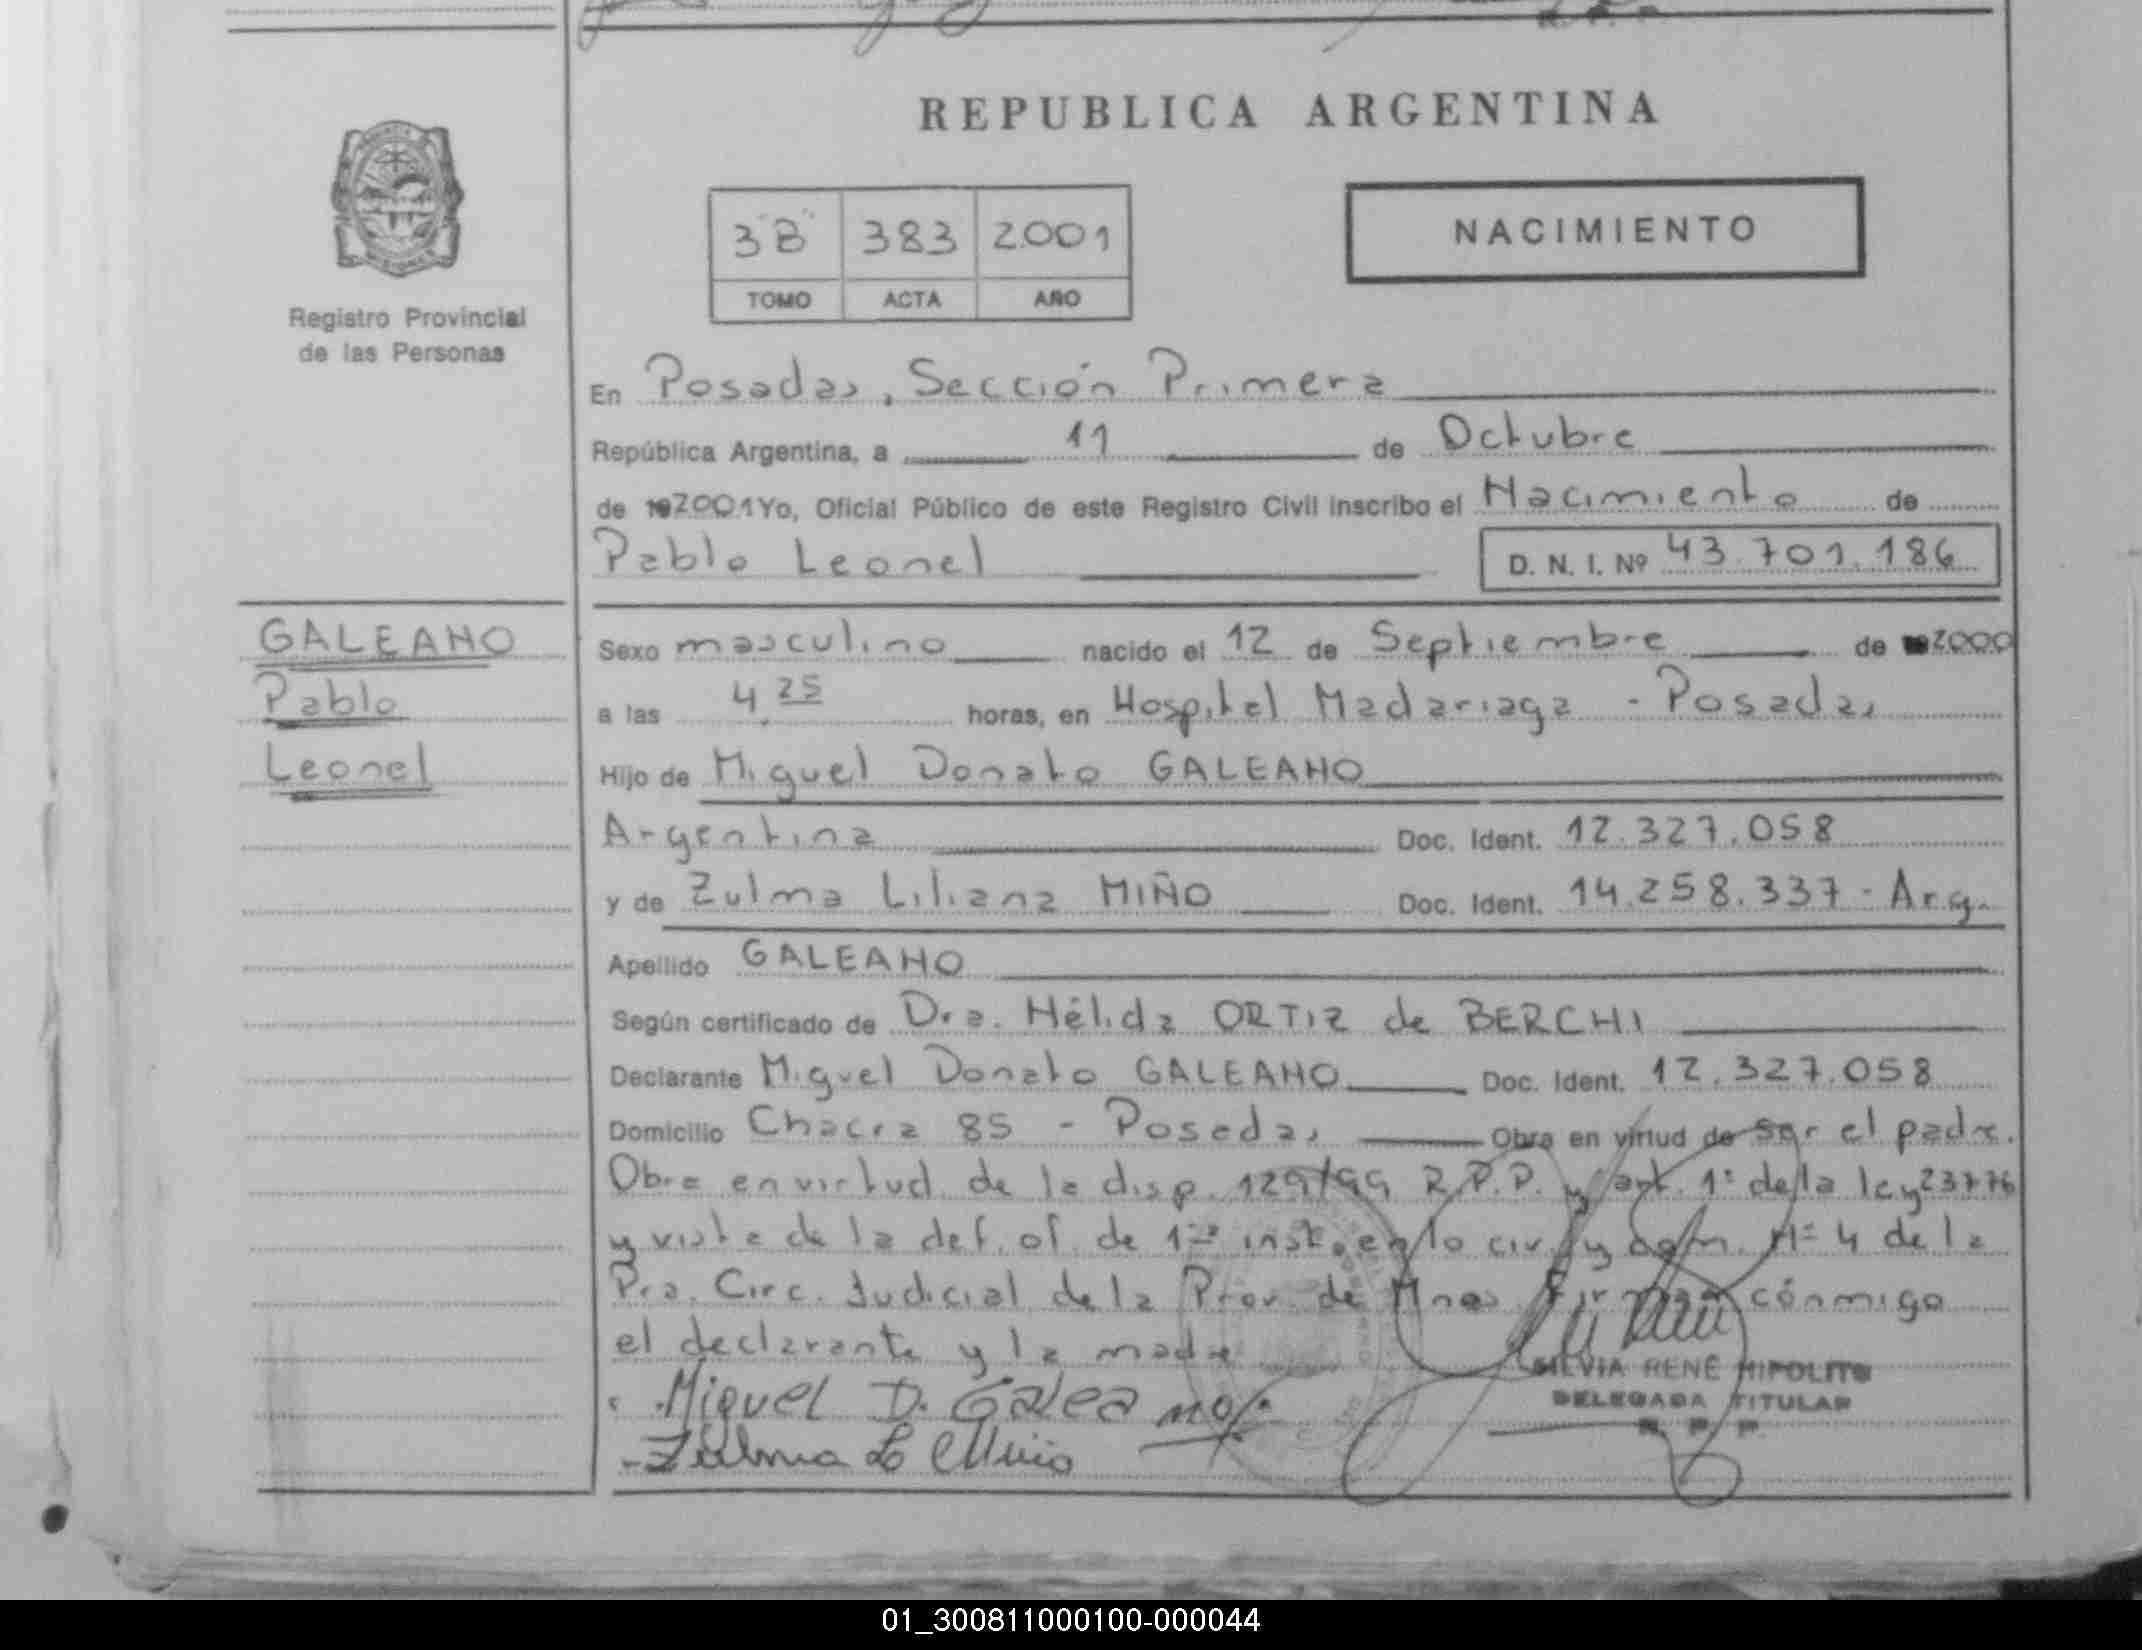 REPUBLICA ARGENTINA
3"B" 383 2.001
TOMO ACTA AÑO
NACIMIENTO
Registro Provincial
de las Personas
En Posadas, Sección Primera
República Argentina, a 11 de Octubre
de 2001 Yo, Oficial Público de este Registro Civil inscribo el Nacimiento de
Pablo Leonel D. N. I. Nº 43.701.186
GALEANO
Pablo
Leonel
Sexo masculino nacido el 12 de Septiembre de 2000
a las 4,25 horas, en Hospital Madariaga - Posadas
Hijo de Miguel Donato GALEANO
Argentina Doc. Ident. 12.327.058
y de Zulma Liliana MIÑO Doc. Ident. 14.258.337 - Arg.
Apellido GALEANO
Según certificado de Dra. Hélida ORTIZ de BERCHI
Declarante Miguel Donato GALEANO Doc. Ident. 12.327.058
Domicilio Chacra 85 - Posadas Obra en virtud de ser el padre.
Obra en virtud de la disp. 129/99 R.P.P. y art. 1º de la ley 23776
y vista de la def. of. de 1ra inst. en lo civ. y com. Nº 4 de la
Pra. Circ. Judicial de la Prov. de Mnes. Firman cónmigo
el declarante y la madre
Miguel D. Galeano
- Zulma L Miño
SILVIA RENÉ HIPOLITO
DELEGADA TITULAR
R. P. P.
01_300811000100-000044